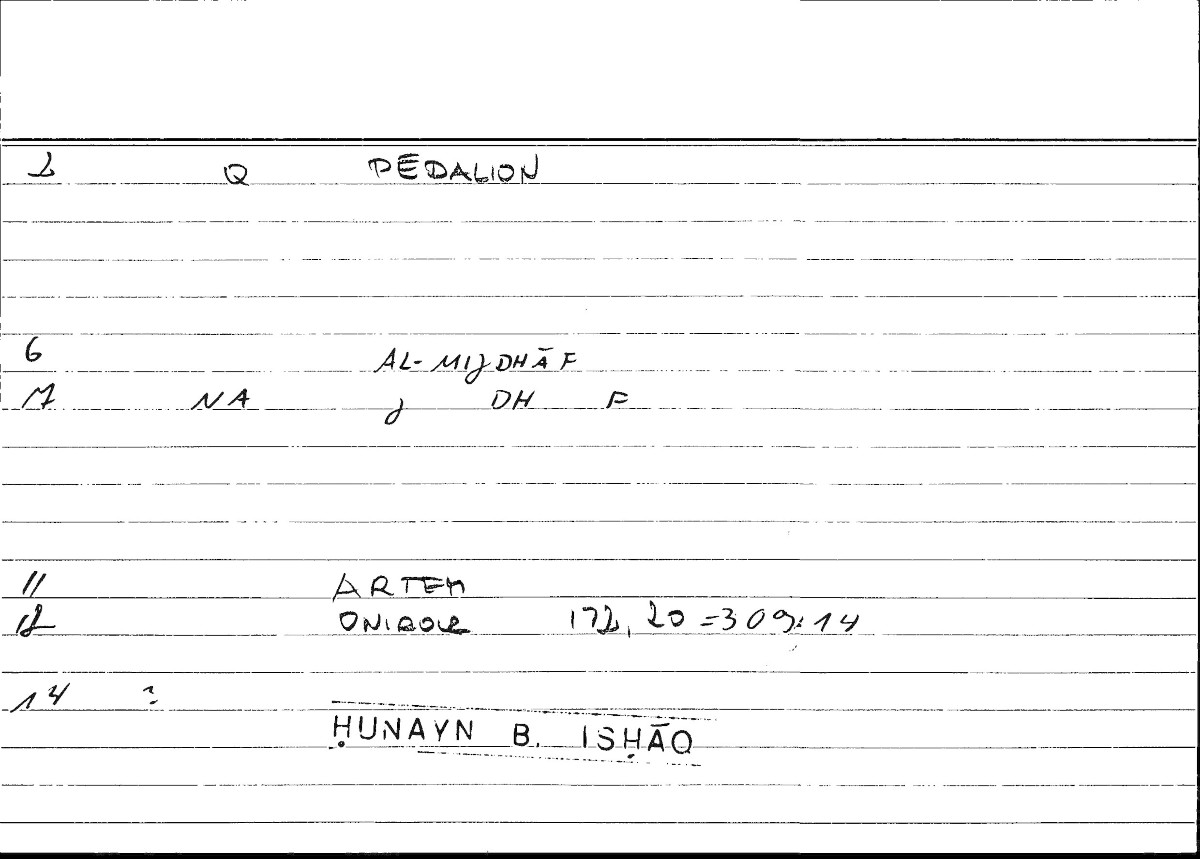 2 Q PĒDALION
6 AL-MIJDHĀF
7 NA J DH F
11 ARTEM
12 ONIROCR 172, 20 = 309:14
14 ?
ḤUNAYN B. ISḤĀQ